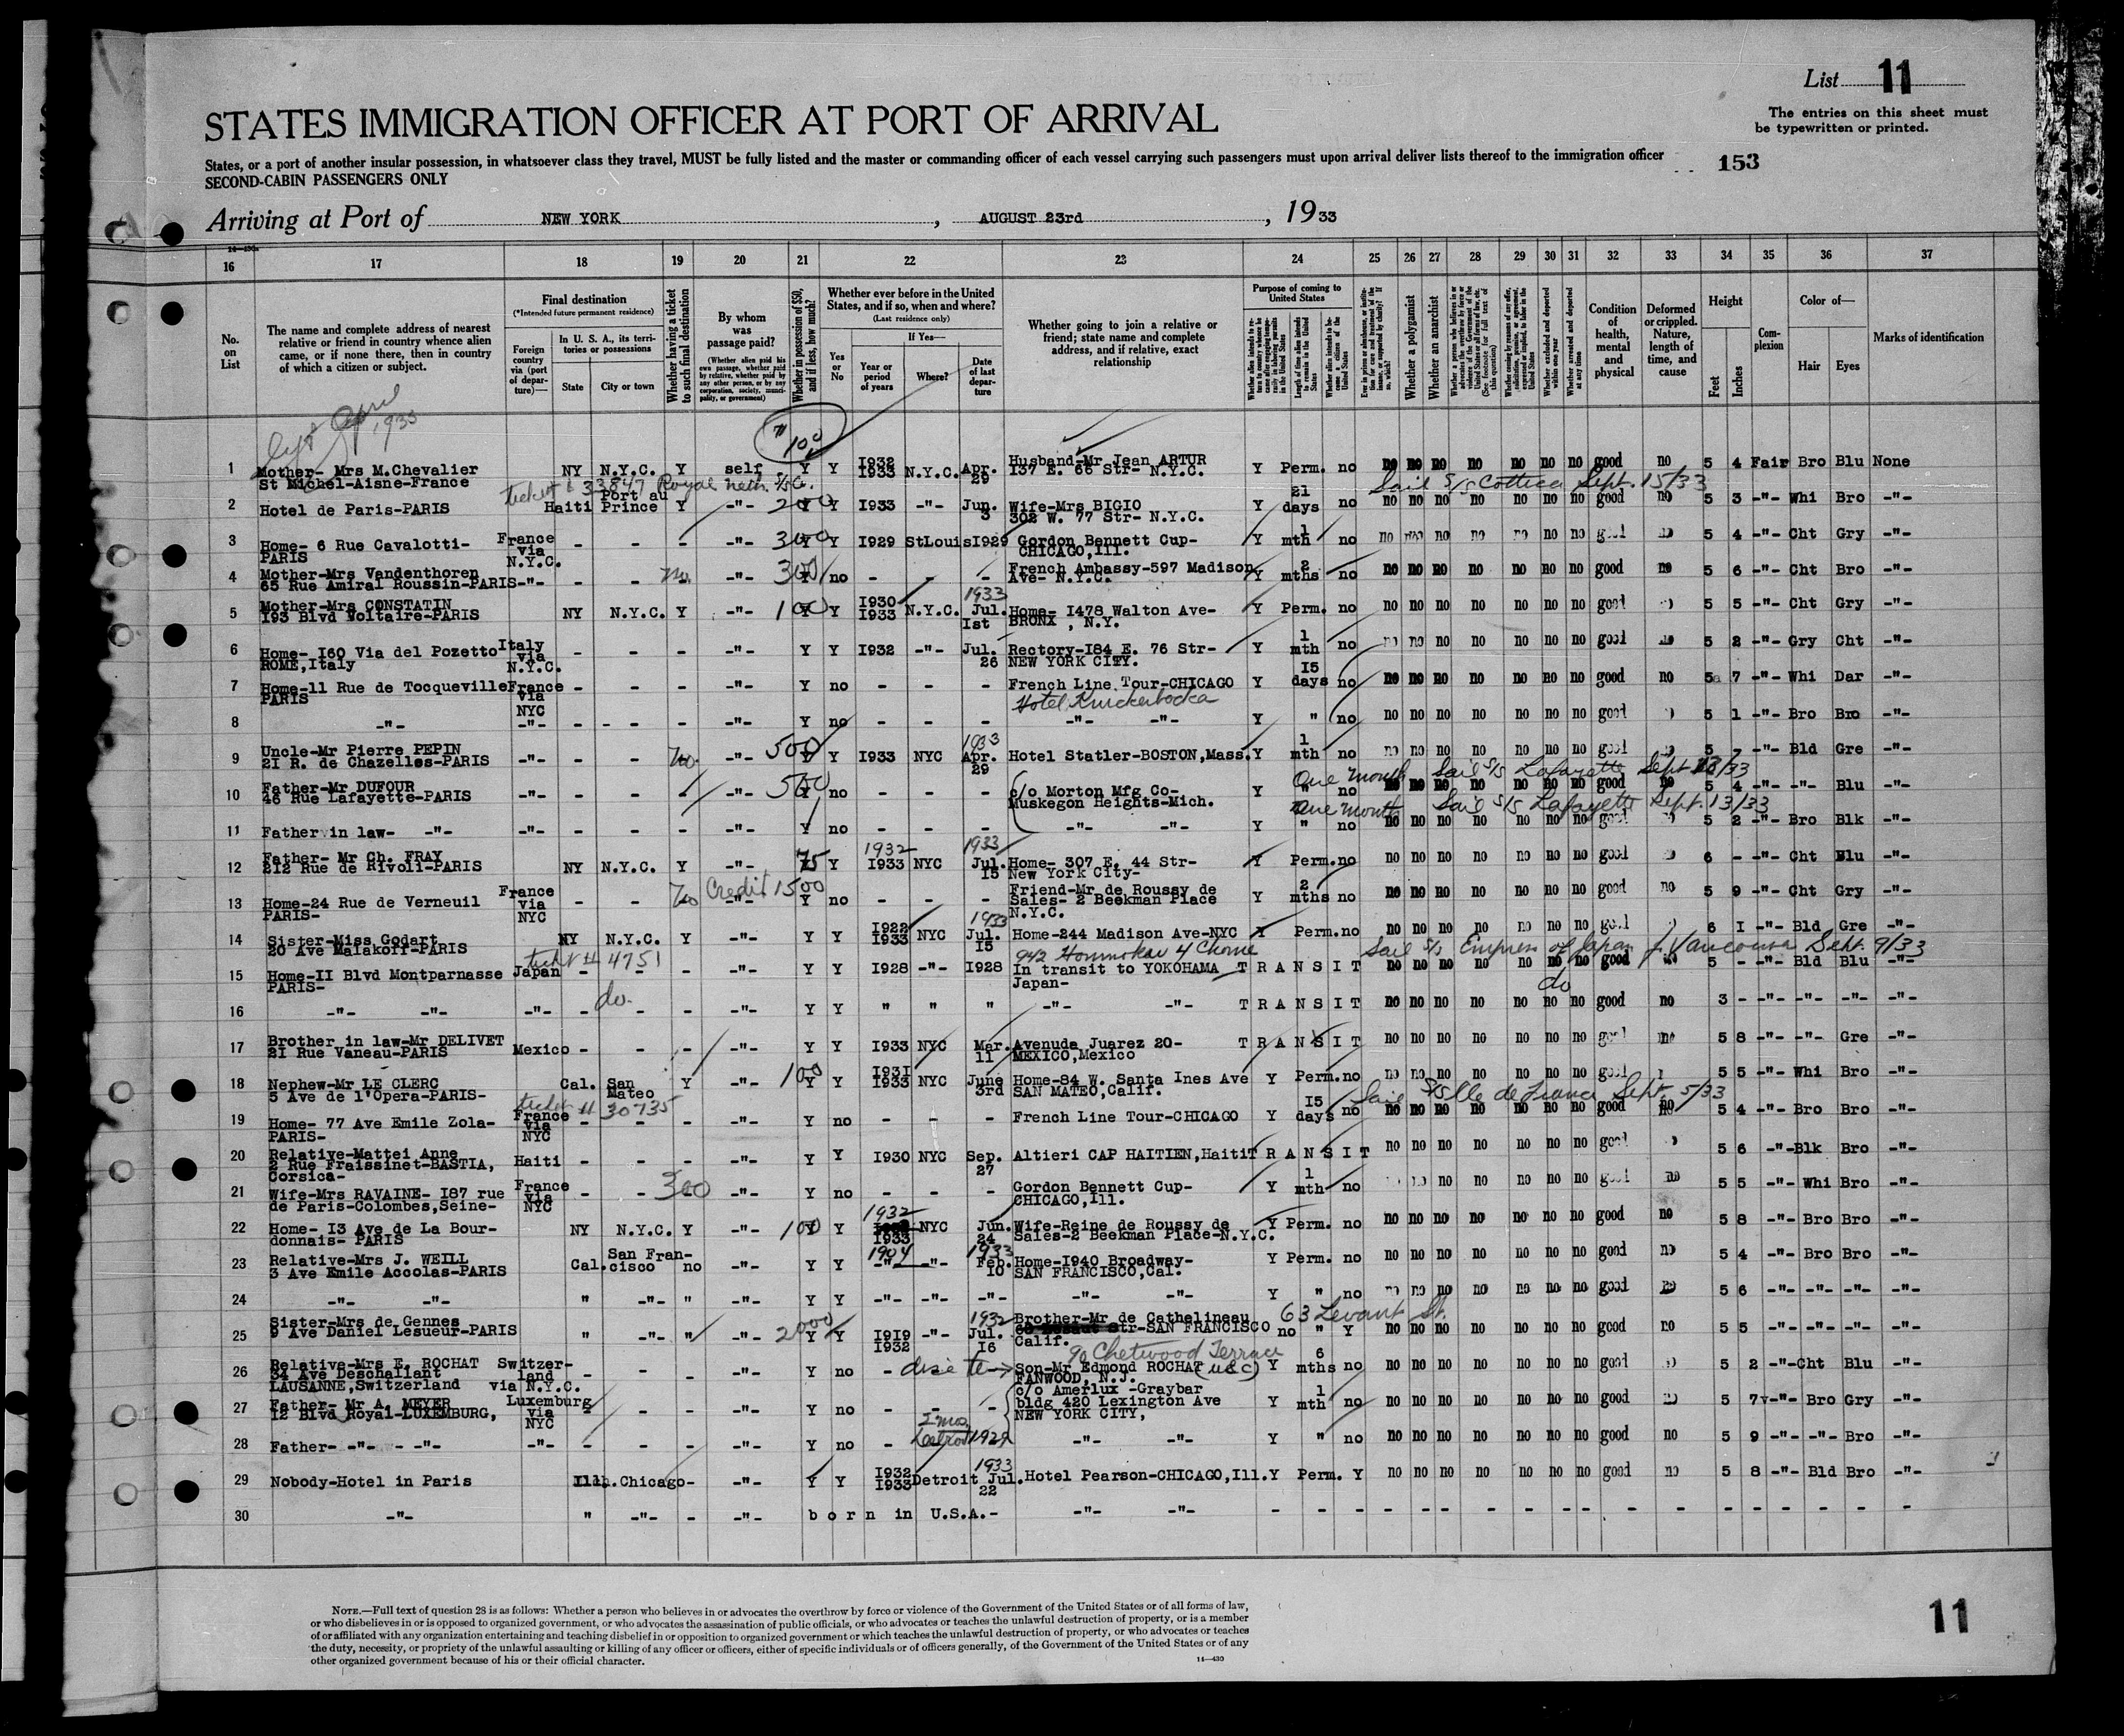 List 11
STATES IMMIGRATION OFFICER AT PORT OF ARRIVAL
The entries on this sheet must
be typewritten or printed.
States, or a port of another insular possession, in whatsoever class they travel, MUST be fully listed and the master or commanding officer of each vessel carrying such passengers must upon arrival deliver lists thereof to the immigration officer
153
SECOND-CABIN PASSENGERS ONLY
Arriving at Port of NEW YORK, AUGUST 23rd, 1933
16 17 18 19 20 21 22 23 24 25 26 27 28 29 30 31 32 33 34 35 36 37
No. on List
The name and complete address of nearest relative or friend in country whence alien came, or if none there, then in country of which a citizen or subject.
Final destination
(*Intended future permanent residence)
Foreign country via (port of departure)—
In U. S. A., its territories or possessions
State
City or town
Whether having a ticket to such final destination
By whom was passage paid?
(Whether alien paid his own passage, whether paid by relative, whether paid by any other person, or by any corporation, society, municipality, or government)
Whether in possession of $50, and if less, how much?
Whether ever before in the United States, and if so, when and where?
(Last residence only)
Yes or No
If Yes—
Year or period of years
Where?
Date of last departure
Whether going to join a relative or friend; state name and complete address, and if relative, exact relationship
Purpose of coming to United States
Length of time alien intends to remain in the United States
Whether alien intends to become a citizen of the United States
Whether a polygamist
Whether an anarchist
Whether excluded and deported within one year
Whether arrested and deported at any time
Condition of health, mental and physical
Deformed or crippled. Nature, length of time, and cause
Height
Feet
Inches
Complexion
Color of—
Hair
Eyes
Marks of identification
April
1933
100
1 Mother- Mrs M.Chevalier St Michel-Aisne-France NY N.Y.C. Y self Y Y I932 I933 N.Y.C. Apr. 29 Husband-Mr Jean ARTUR I37 E. 66 Str- N.Y.C. Y Perm. no no no no no no no no good no 5 4 Fair Bro Blu None
ticket # 33847 Royal Neth. S/S Co. Sail S/S Cottica Sept. 15/33
2 Hotel de Paris-PARIS Haiti Port au Prince Y -"- 200 Y Y I933 -"- Jun. 3 Wife-Mrs BIGIO 302 W. 77 Str- N.Y.C. Y 21 days no no no no no no no no good no 5 3 -"- Whi Bro -"-
3 Home- 6 Rue Cavalotti- PARIS France via N.Y.C. - - - -"- 300 Y Y I929 StLouis I929 Gordon Bennett Cup- CHICAGO,Ill. Y 1 mth no no no no no no no no good no 5 4 -"- Cht Gry -"-
4 Mother-Mrs Vandenthoren 65 Rue Amiral Roussin-PARIS -"- - - no -"- 300 Y no - - - French Ambassy-597 Madison Ave- N.Y.C. Y 2 mths no no no no no no no no good no 5 6 -"- Cht Bro -"-
5 Mother-Mrs CONSTATIN I93 Blvd Voltaire-PARIS NY N.Y.C. Y -"- 100 Y Y I930 I933 N.Y.C. 1933 Jul. Ist Home- I478 Walton Ave- BRONX , N.Y. Y Perm. no no no no no no no no good no 5 5 -"- Cht Gry -"-
6 Home- I60 Via del Pozetto ROME,Italy Italy via N.Y.C. - - - -"- Y Y I932 -"- Jul. 26 Rectory-I84 E. 76 Str- NEW YORK CITY. Y 1 mth no no no no no no no no good no 5 2 -"- Gry Cht -"-
7 Home-11 Rue de Tocqueville PARIS France via NYC - - - -"- Y no - - - French Line Tour-CHICAGO Y I5 days no no no no no no no no good no 5 7 -"- Whi Dar -"-
Hotel Knickerbocka
8 -"- -"- - - - - -"- Y no - - - -"- -"- Y " no no no no no no no no good no 5 1 -"- Bro Bro -"-
9 Uncle-Mr Pierre PEPIN 2I R. de Chazelles-PARIS -"- - - No -"- 500 Y Y I933 NYC 1933 Apr. 29 Hotel Statler-BOSTON,Mass. Y 1 mth no no no no no no no no good no 5 7 -"- Bld Gre -"-
One month Sail S/S Lafayette Sept 13/33
10 Father-Mr DUFOUR 46 Rue Lafayette-PARIS -"- - - - -"- 500 Y no - - - c/o Morton Mfg Co- Muskegon Heights-Mich. Y " no no no no no no no no good no 5 4 -"- -"- Blu -"-
One month Sail S/S Lafayette Sept. 13/33
11 Father in law- -"- -"- - - - -"- Y no - - - -"- -"- Y " no no no no no no no no good no 5 2 -"- Bro Blk -"-
12 Father- Mr Ch. FRAY 212 Rue de Rivoli-PARIS NY N.Y.C. Y -"- 75 Y 1932 I933 NYC 1933 Jul. I5 Home- 307 E. 44 Str- New York City- Y Perm. no no no no no no no no good no 6 - -"- Cht Blu -"-
13 Home-24 Rue de Verneuil PARIS- France via NYC - - No -"- Credit 1500 Y no - - - Friend-Mr de Roussy de Sales- 2 Beekman Place N.Y.C. Y 2 mths no no no no no no no no good no 5 9 -"- Cht Gry -"-
14 Sister-Miss Godart 20 Ave Malakoff-PARIS NY N.Y.C. Y -"- Y Y I922 I933 NYC 1933 Jul. I5 Home-244 Madison Ave-NYC Y Perm. no no no no no no no no good 6 I -"- Bld Gre -"-
ticket # 4751 942 Honmokav 4 Chome Sail S/S Empress of Japan f. Vancouver Sept. 9/33
15 Home-II Blvd Montparnasse PARIS- Japan - - - -"- Y Y I928 -"- I928 In transit to YOKOHAMA Japan- TRANSIT no no no no no no no good 5 - -"- Bld Blu -"-
do. do
16 -"- -"- -"- - - - -"- Y Y " " " -"- -"- TRANSIT no no no no no no no good no 3 - -"- -"- -"- -"-
17 Brother in law-Mr DELIVET 2I Rue Vaneau-PARIS Mexico - - - -"- Y Y I933 NYC Mar. 11 Avenuda Juarez 20- MEXICO,Mexico TRANSIT no no no no no no no good no 5 8 -"- -"- Gre -"-
18 Nephew-Mr LE CLERC 5 Ave de l'Opera-PARIS- Cal. San Mateo Y -"- 100 Y Y I931 I933 NYC June 3rd Home-84 W. Santa Ines Ave SAN MATEO,Calif. Y Perm. no no no no no no no no good 5 5 -"- Whi Bro -"-
ticket # 30735 Sail S/S Ile de France Sept. 5/33
19 Home- 77 Ave Emile Zola- PARIS- France via NYC - - - -"- Y no - - - French Line Tour-CHICAGO Y I5 days no no no no no no no no good no 5 4 -"- Bro Bro -"-
20 Relative-Mattei Anne 2 Rue Fraissinet-BASTIA, Corsica- Haiti - - - -"- Y Y I930 NYC Sep. 27 Altieri CAP HAITIEN,Haiti TRANSIT no no no no no no no good 5 6 -"- Blk Bro -"-
21 Wife-Mrs RAVAINE- I87 rue de Paris-Colombes,Seine- France via NYC - - 300 -"- Y no - - - Gordon Bennett Cup- CHICAGO,Ill. Y 1 mth no no no no no no good no 5 5 -"- Whi Bro -"-
22 Home- I3 Ave de La Bourdonnais- PARIS NY N.Y.C. Y -"- 100 Y Y 1932 I933 NYC Jun. 24 Wife-Reine de Roussy de Sales-2 Beekman Place-N.Y.C. Y Perm. no no no no no no no no good no 5 8 -"- Bro Bro -"-
23 Relative-Mrs J. WEILL 3 Ave Emile Accolas-PARIS Cal. San Francisco no -"- Y Y 1904 -"- -"- 1933 Feb. 10 Home-I940 Broadway- SAN FRANCISCO,Cal. Y Perm. no no no no no no no no good no 5 4 -"- Bro Bro -"-
24 -"- -"- " -"- " -"- Y Y -"- -"- -"- -"- -"- Y " no no no no no no no no good no 5 6 -"- -"- -"- -"-
25 Sister-Mrs de Gennes 9 Ave Daniel Lesueur-PARIS " -"- " -"- 2000 Y Y I9I9 I932 -"- 1932 Jul. I6 Brother-Mr de Cathelineau 63 Levant St. Str-SAN FRANCISCO Calif. no " Y no no no no no no no good no 5 5 -"- -"- -"- -"-
26 Relative-Mrs E. ROCHAT 34 Ave Deschallant LAUSANNE,Switzerland Switzerland via N.Y.C. - - - -"- Y no - Son-Mr Edmond ROCHAT (USC) 90 Chetwood Terrace FANWOOD, N.J. Y 6 mths no no no no no no no no good 5 2 -"- Cht Blu -"-
27 Father- Mr A. MEYER I2 Blvd Royal-LUXEMBURG, Luxemburg via NYC - - - -"- Y no - - - c/o Amerlux -Graybar bldg 420 Lexington Ave NEW YORK CITY, Y 1 mth no no no no no no no no good no 5 7 -"- Bro Gry -"-
28 Father- -"- - -"- -"- - - - -"- Y no - 2 mos. Detroit 1929 -"- -"- Y " no no no no no no no no good no 5 9 -"- -"- Bro -"-
29 Nobody-Hotel in Paris Ill. Chicago- -"- Y Y I932 I933 Detroit 1933 Jul. 22 Hotel Pearson-CHICAGO,Ill. Y Perm. Y no no no no no no no good no 5 8 -"- Bld Bro -"-
30 -"- " -"- - -"- born in U.S.A.- -"- -"- - - - - - - - - - - - - - - - - - -
NOTE.—Full text of question 28 is as follows: Whether a person who believes in or advocates the overthrow by force or violence of the Government of the United States or of all forms of law,
or who disbelieves in or is opposed to organized government, or who advocates the assassination of public officials, or who advocates or teaches the unlawful destruction of property, or is a member
of or affiliated with any organization entertaining and teaching disbelief in or opposition to organized government or which teaches the unlawful destruction of property, or who advocates or teaches
the duty, necessity, or propriety of the unlawful assaulting or killing of any officer or officers, either of specific individuals or of officers generally, of the Government of the United States or of any
other organized government because of his or their official character.
14—430
11